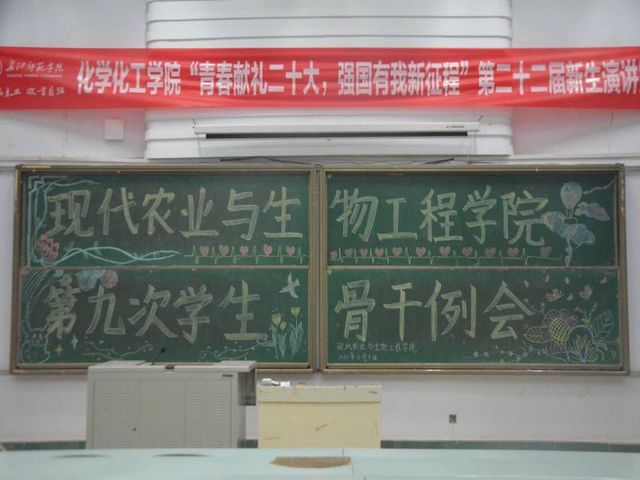 长江师范学院
化学化工学院“青春献礼二十大，强国有我新征程”第二十二届新生演讲
现代农业与生物工程学院
第九次学生骨干例会
现代农业与生物工程学院